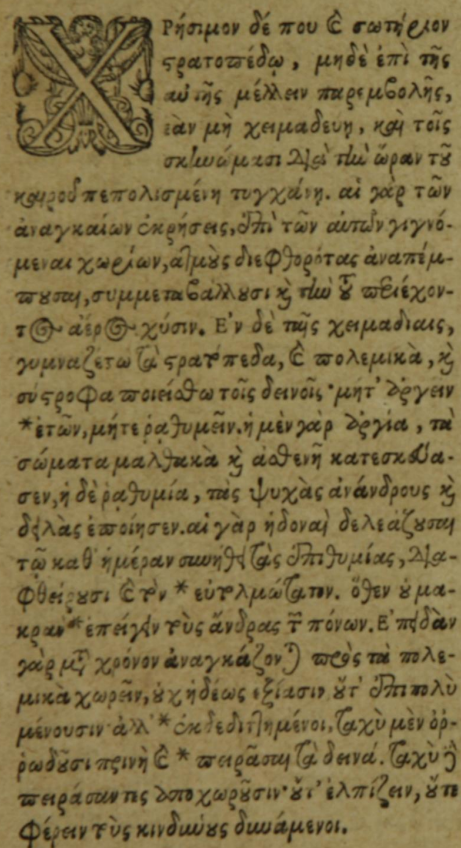 ΧΡήσιμον δέ που καὶ σωτήριον
στρατοπέδῳ, μηδὲ ἐπὶ τῆς
αὐτῆς μέλλειν παρεμβολῆς,
ἐὰν μὴ χειμαδεύῃ, καὶ τοῖς
σκηνώμασι διὰ τὴν ὥραν τοῦ
καιροῦ πεπολισμένη τυγχάνῃ. αἱ γὰρ τῶν
ἀναγκαίων ἐκκρήσεις, ἐπὶ τῶν αὐτῶν γιγνό-
μεναι χωρίων, ἀτμοὺς διεφθορότας ἀναπέμ-
πουσαι, συμμεταβάλλουσι καὶ τὴν τοῦ περιέχον-
τος ἀέρος χύσιν. Ἐν δὲ ταῖς χειμαδίαις,
γυμναζέτω τὰ στρατόπεδα, καὶ πολεμικὰ, καὶ
σύντροφα ποιείσθω τοῖς δεινοῖς· μήτ' ἀργεῖν
*ἐτῶν, μήτε ῥᾳθυμεῖν. ἡ μὲν γὰρ ἀργία, τὰ
σώματα μαλθακὰ καὶ ἀσθενῆ κατεσκεύα-
σεν, ἡ δὲ ῥᾳθυμία, τὰς ψυχὰς ἀνάνδρους καὶ
δειλὰς ἐποίησεν. αἱ γὰρ ἡδοναὶ δελεάζουσαι
τῷ καθ' ἡμέραν συνήθει τὰς ἐπιθυμίας, δια-
φθείρουσι καὶ τὸν * εὐτολμώτατον. ὅθεν οὐ μα-
κρὰν * ἐπείγειν τοὺς ἄνδρας τῶν πόνων. Ἐπειδὰν
γὰρ μετὰ χρόνον ἀναγκάζονται πρὸς τὰ πολε-
μικὰ χωρεῖν, οὐχ ἡδέως ἐξίασιν οὔτ' ἐπιπολὺ
μένουσιν· ἀλλ' * ἐκδεδιῃτημένοι, ταχὺ μὲν ὀρ-
ρωδοῦσι πρινὴ καὶ * πειρᾶσαι τὰ δεινά. ταχὺ δὲ
πειράσαντες ἀποχωροῦσιν· οὔτ' ἐλπίζειν, οὔτε
φέρειν τοὺς κινδύνους δυνάμενοι.